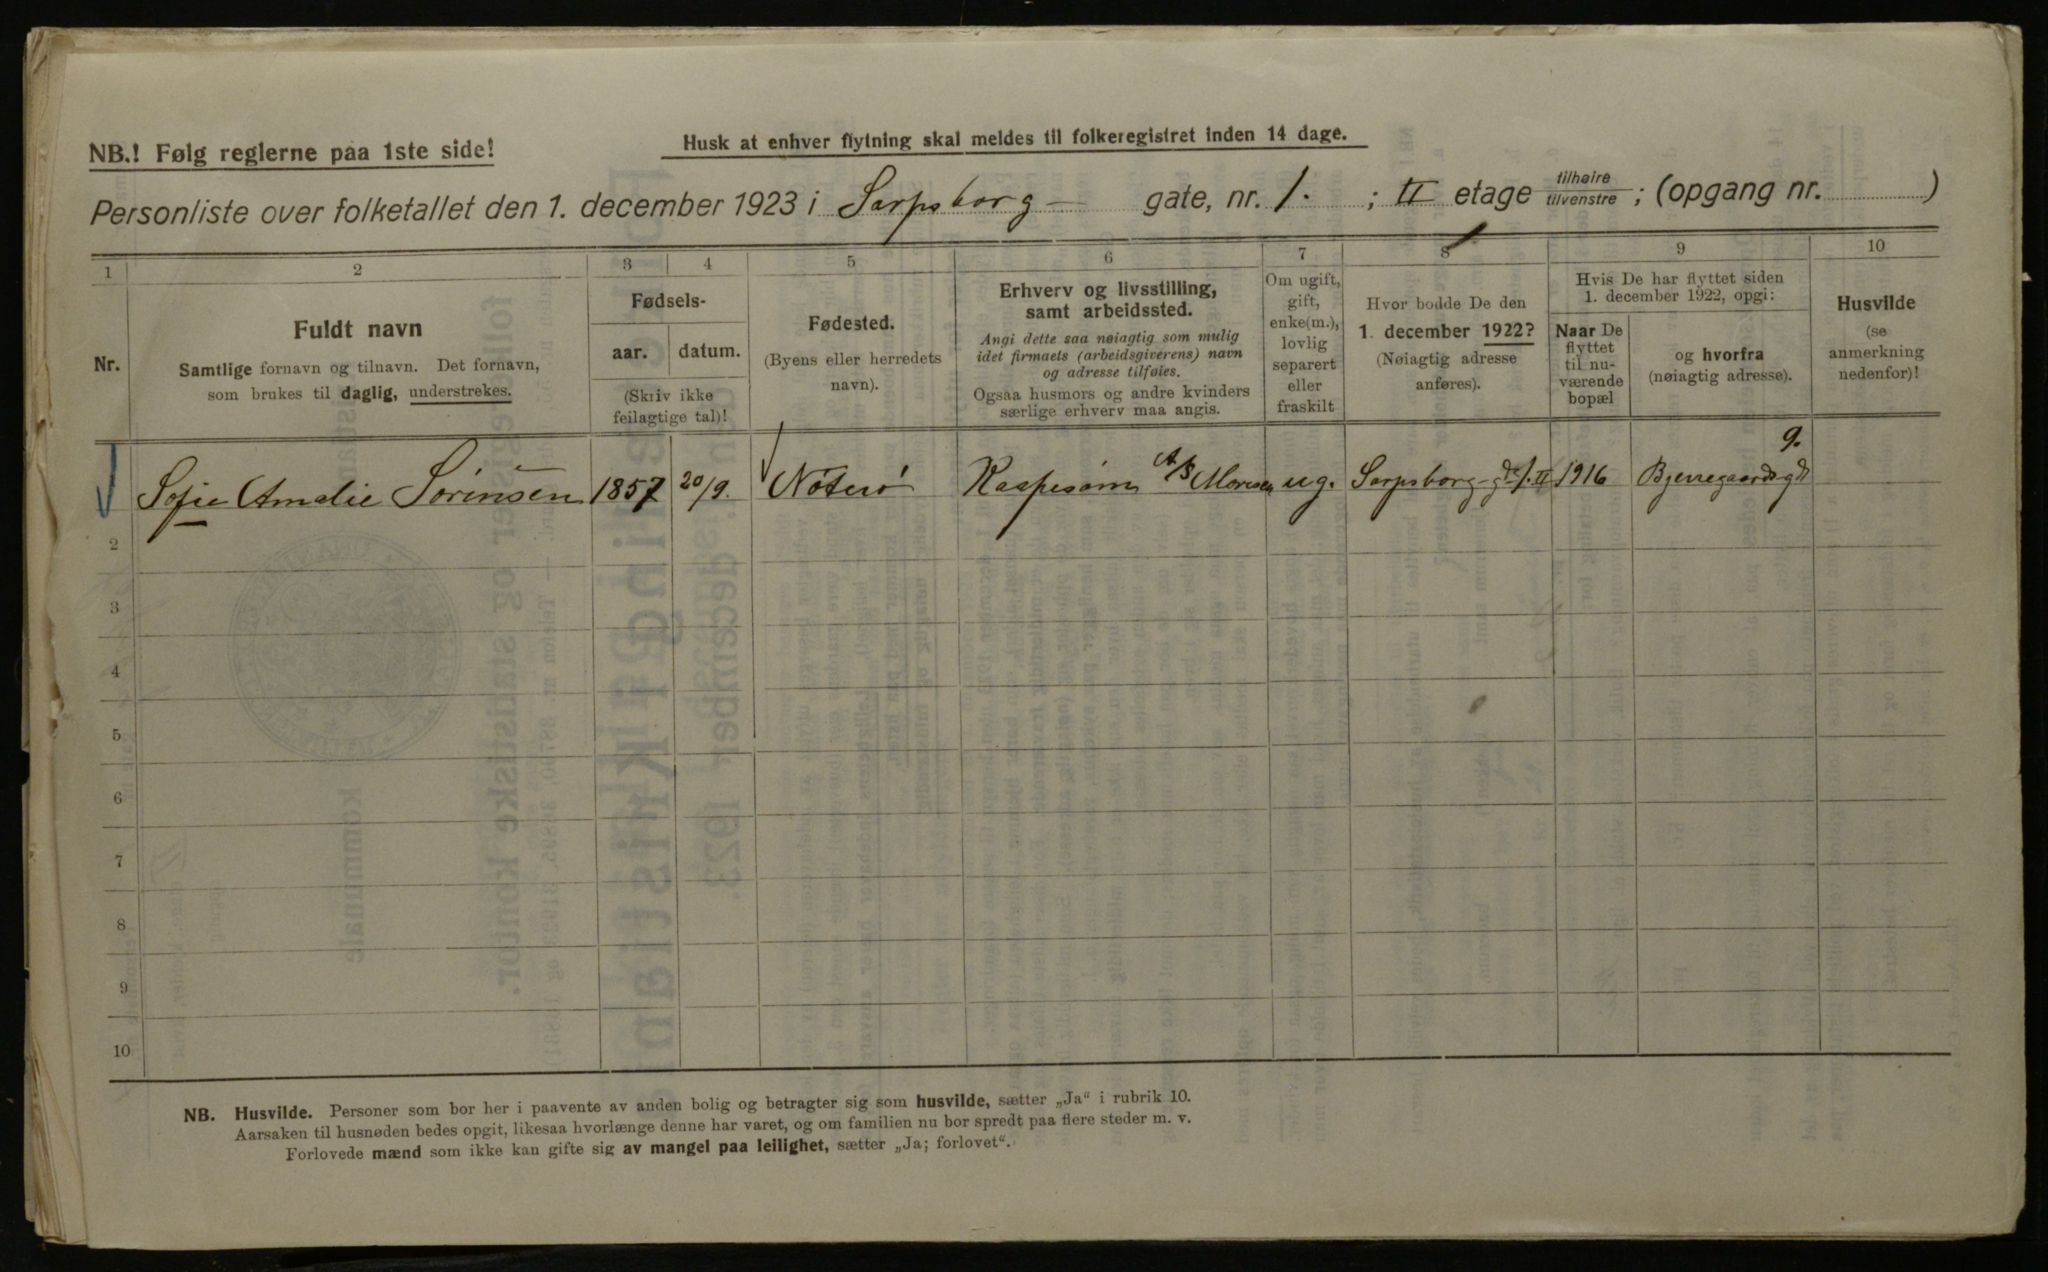 NB.! Følg reglerne paa 1ste side!
Husk at enhver flytning skal meldes til folkeregistret inden 14 dage.
Personliste over folketallet den 1. december 1923 i Sarpsborg gate, nr. 1. ; II etage tilhøire tilvenstre ; (opgang nr. )
1 2 3 4 5 6 7 8 9 10
Nr.
Fuldt navn
Samtlige fornavn og tilnavn. Det fornavn,
som brukes til daglig, understrekes.
Fødsels-
aar. datum.
(Skriv ikke
feilagtige tal)!
Fødested.
(Byens eller herredets
navn).
Erhverv og livsstilling,
samt arbeidssted.
Angi dette saa nøiagtig som mulig
idet firmaets (arbeidsgiverens) navn
og adresse tilføies.
Ogsaa husmors og andre kvinders
særlige erhverv maa angis.
Om ugift,
gift,
enke(m.),
lovlig
separert
eller
fraskilt
Hvor bodde De den
1. december 1922?
(Nøiagtig adresse
anføres).
Hvis De har flyttet siden
1. december 1922, opgi:
Naar De
flyttet
til nu-
værende
bopæl
og hvorfra
(nøiagtig adresse).
Husvilde
(se
anmerkning
nedenfor)!
Sofie Amalie Sørensen 1857 20/9. Nøterø A/S ug. Sarpsborg-gt 1. II 1916 Bjerregaardsgt 9.
2
3
4
5
6
7
8
9
10
NB. Husvilde. Personer som bor her i paavente av anden bolig og betragter sig som husvilde, sætter „Ja“ i rubrik 10.
Aarsaken til husnøden bedes opgit, likesaa hvorlænge denne har varet, og om familien nu bor spredt paa flere steder m. v.
Forlovede mænd som ikke kan gifte sig av mangel paa leilighet, sætter „Ja; forlovet“.